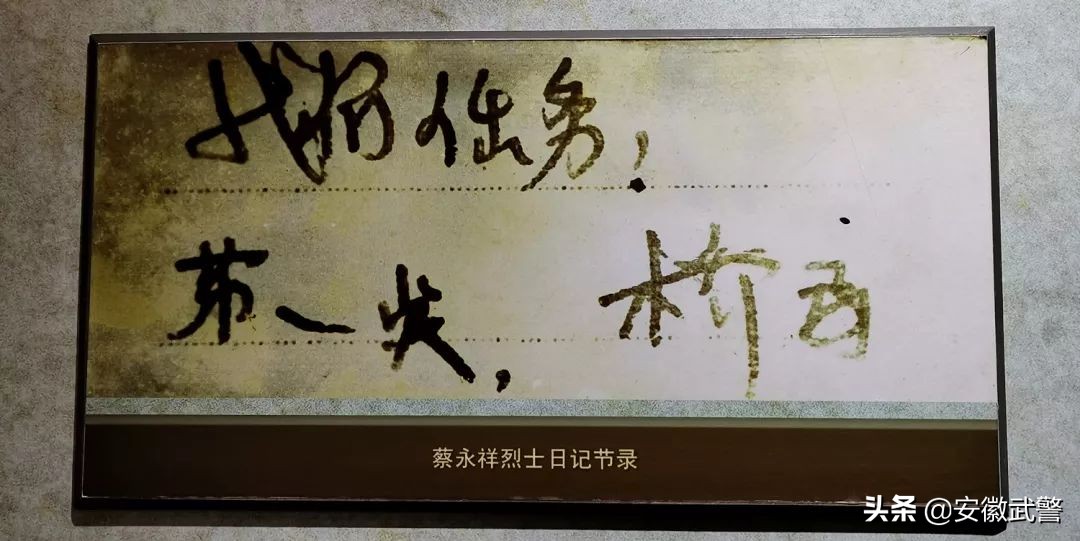 我的任务!
第一, 桥西
蔡永祥烈士日记节录
头条 @安徽武警